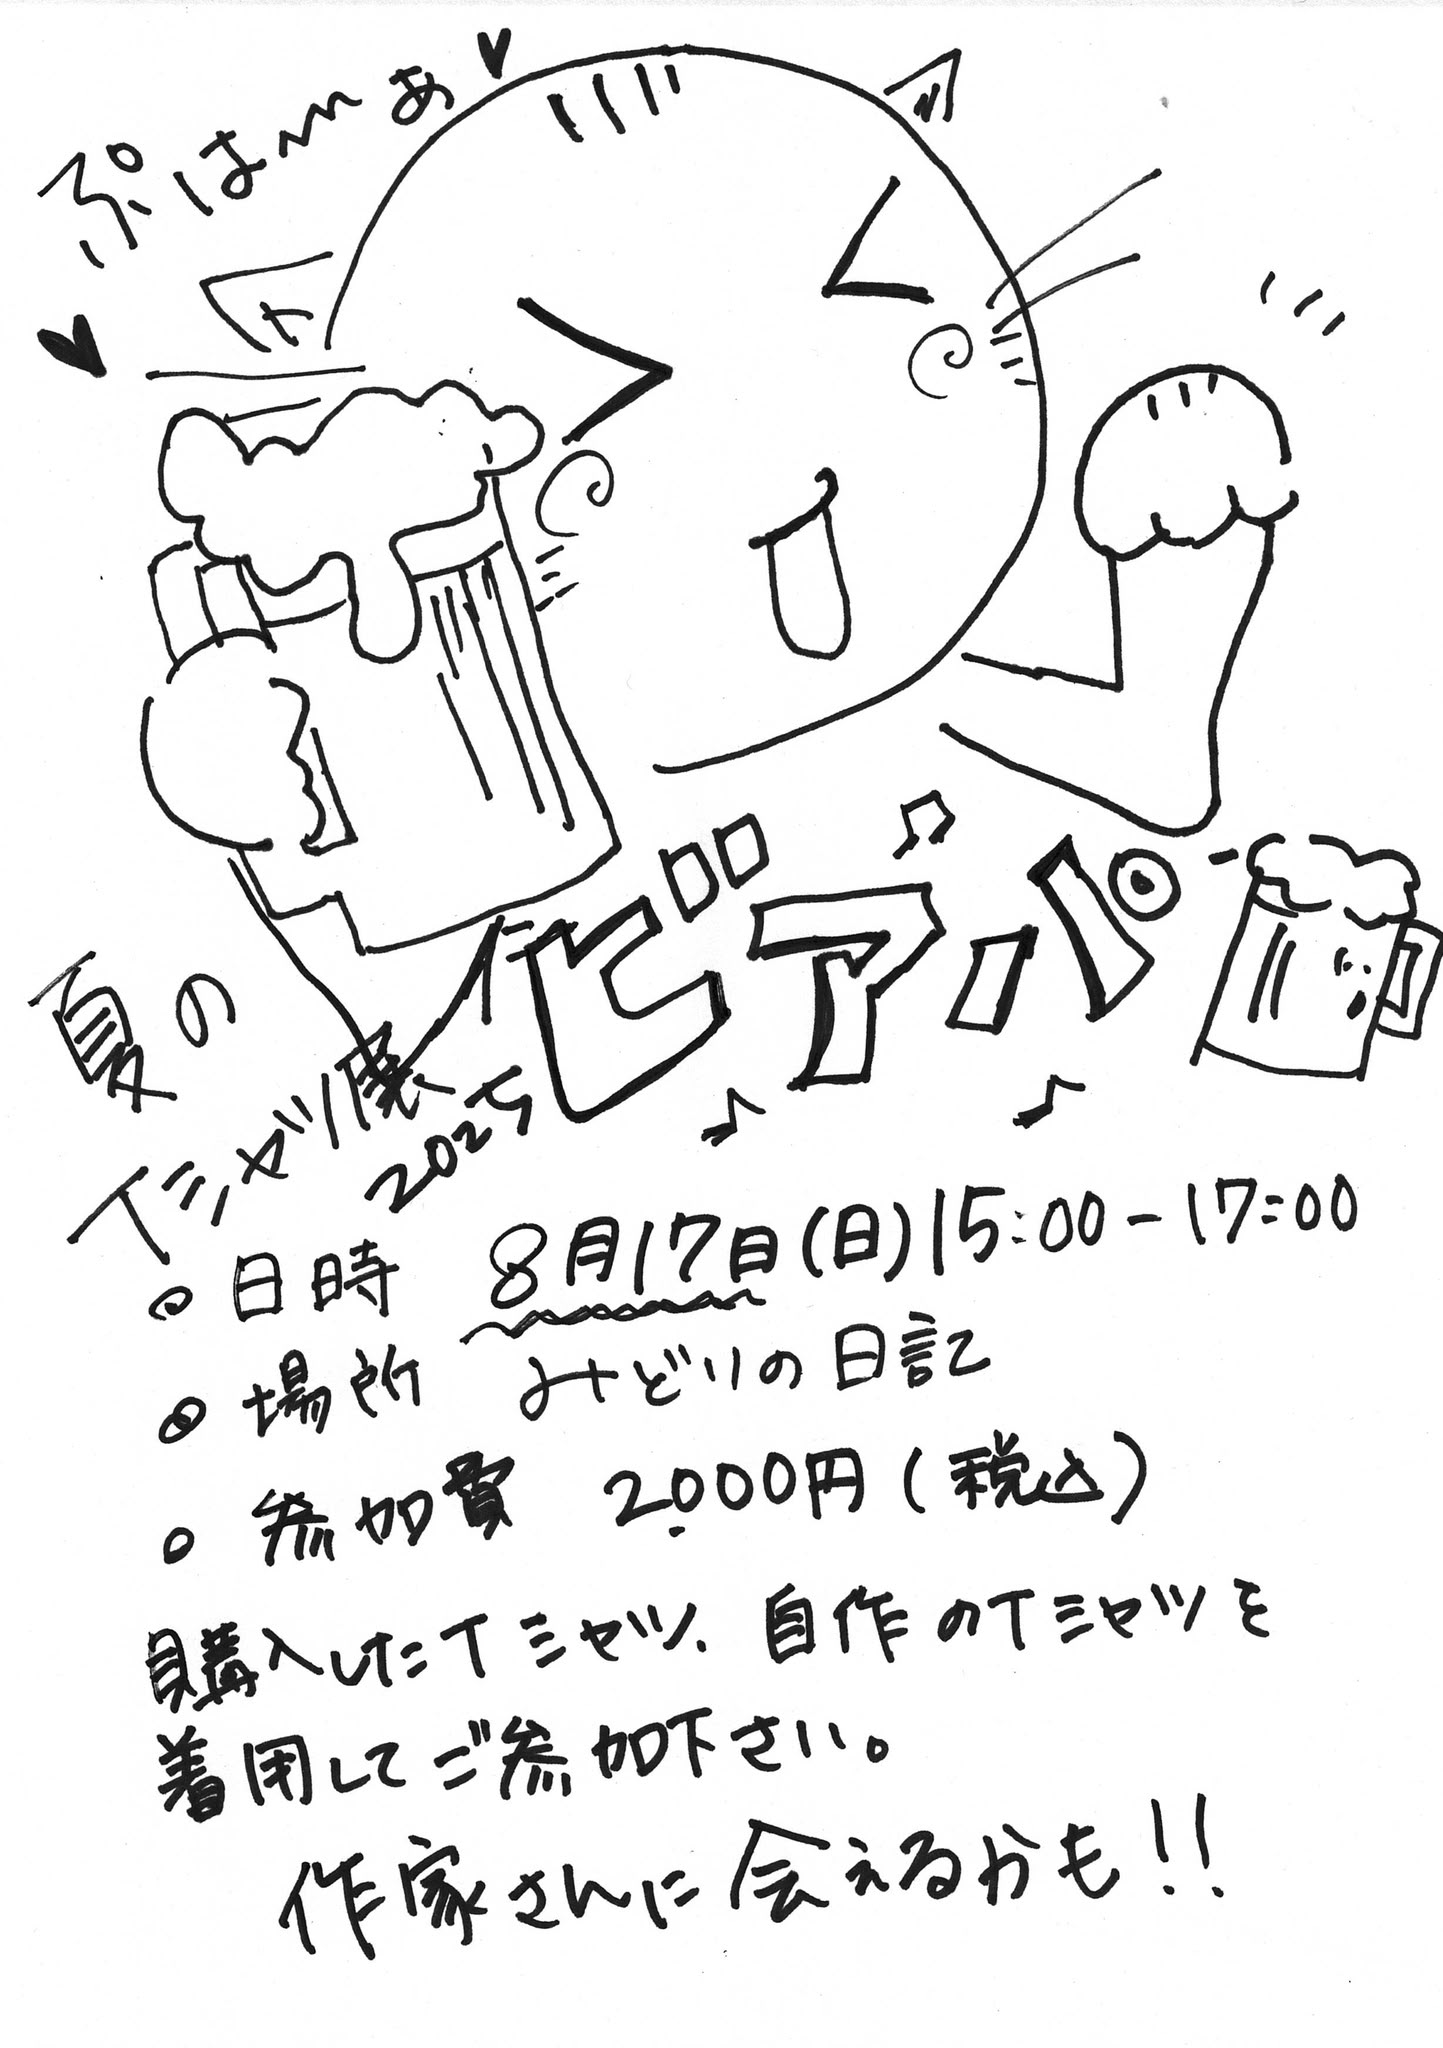 ぷは〜ぁ♥
夏の
Tシャツ展
2025
ビアパ
• 日時 8月17日(日)15:00-17:00
• 場所 みどりの日記
• 参加費 2,000円(税込)
購入したTシャツ、自作のTシャツを
着用してご参加下さい。
作家さんに会えるかも!!